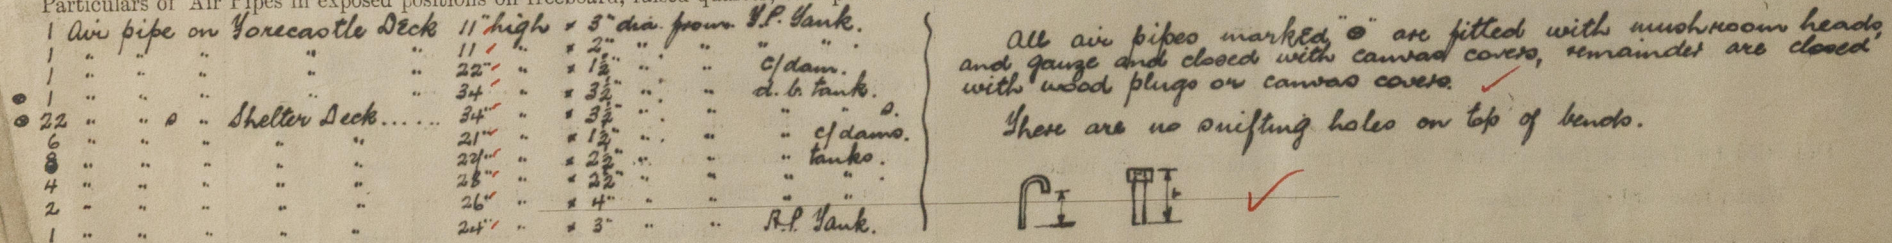 Particulars of Air Pipes in exposed positions on freeboard, raised
1 Air pipe on Forecastle Deck 11" high × 3" dia. from F.P. Tank.
1 " " " " " 11" " × 2" " " " " .
1 " " " " " 22" " × 1½" " " c/dam.
1 " " " " " 34" " × 3½" " " d.b. tank.
22 " " s " Shelter Deck...... 34" " × 3½" " " " " s.
6 " " " " " 21" " × 1½" " " " c/dams.
8 " " " " " 24" " × 2½" " " " tanks.
4 " " " " " 28" " × 2½" " " " " .
2 " " " " " 26" " × 4" " " " "
1 " " " " " 24" " × 3" " " A.P. Tank.
All air pipes marked "●" are fitted with mushroom heads,
and gauze and closed with canvas covers, remainder are closed
with wood plugs or canvas covers.
There are no snifting holes on top of bends.